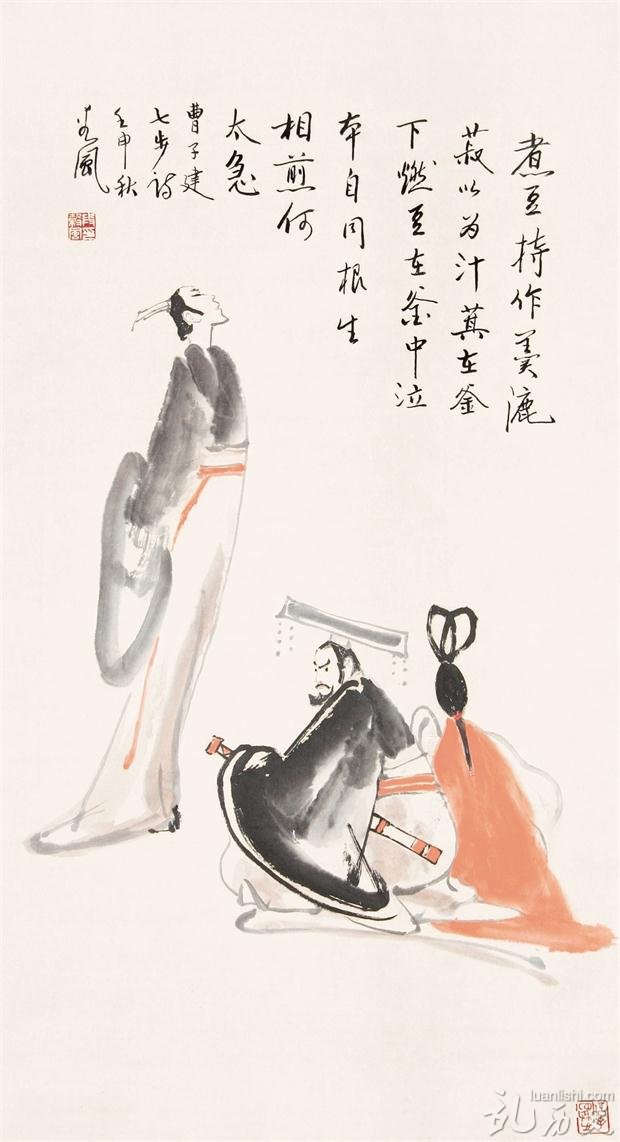 煮豆持作羹漉
菽以为汁萁在釜
下燃豆在釜中泣
本自同根生
相煎何
太急
曹子建
七步诗
壬申秋
風
luanlishi.com